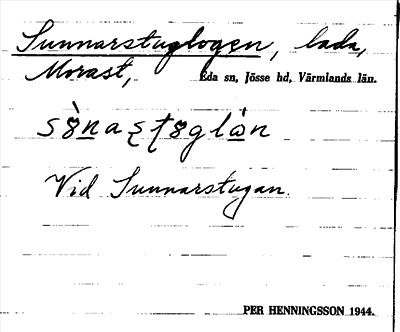 Sunnarstuglogen, lada,
Morast, Eda sn, Jösse hd, Värmlands län.
Vid Sunnarstugan.
PER HENNINGSSON 1944.